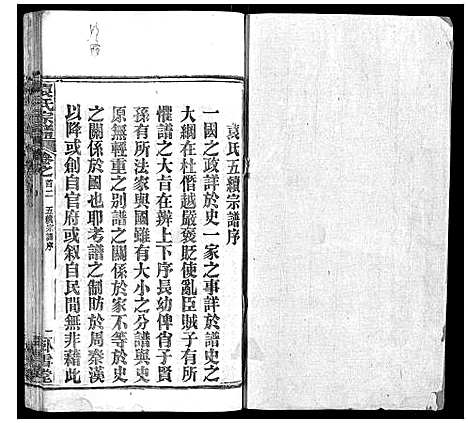 袁氏五續宗譜序
一國之政詳於史一家之事詳於譜史之
大綱在杜僭越嚴褒貶使亂臣賊子有所
懼譜之大旨在辨上下序長幼俾肖子賢
孫有所法家與國雖有大小之分譜與史
原無輕重之別譜之關係於家不等於史
之關係於國也耶考譜之制昉於周秦漢
以降或創自官府或叙自民間無非藉此
袁氏宗譜
卷之首二 五續宗譜序
臥雪堂